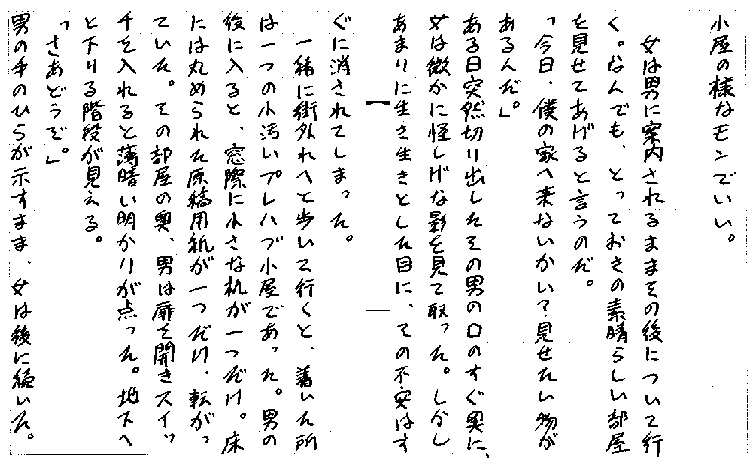 小屋の様なモンでいい。
女は男に案内されるままその後について行
く。なんでも、とっておきの素晴らしい部屋
を見せてあげると言うのだ。
「今日、僕の家へ来ないかい？見せたい物が
あるんだ」。
ある日突然切り出したその男の口のすぐ奥に、
女は微かに怪しげな影を見て取った。しかし
あまりに生き生きとした目に、その不安はす
ぐに消されてしまった。
一緒に街外れへと歩いて行くと、着いた所
は一つの小汚いプレハブ小屋であった。男の
後に入ると、窓際に小さな机が一つだけ。床
には丸められた原稿用紙が一つだけ、転がっ
ていた。その部屋の奥、男は扉を開きスイッ
チを入れると薄暗い明かりが点った。地下へ
と下りる階段が見える。
「さあどうぞ」。
男の手のひらが示すまま、女は後に続いた。